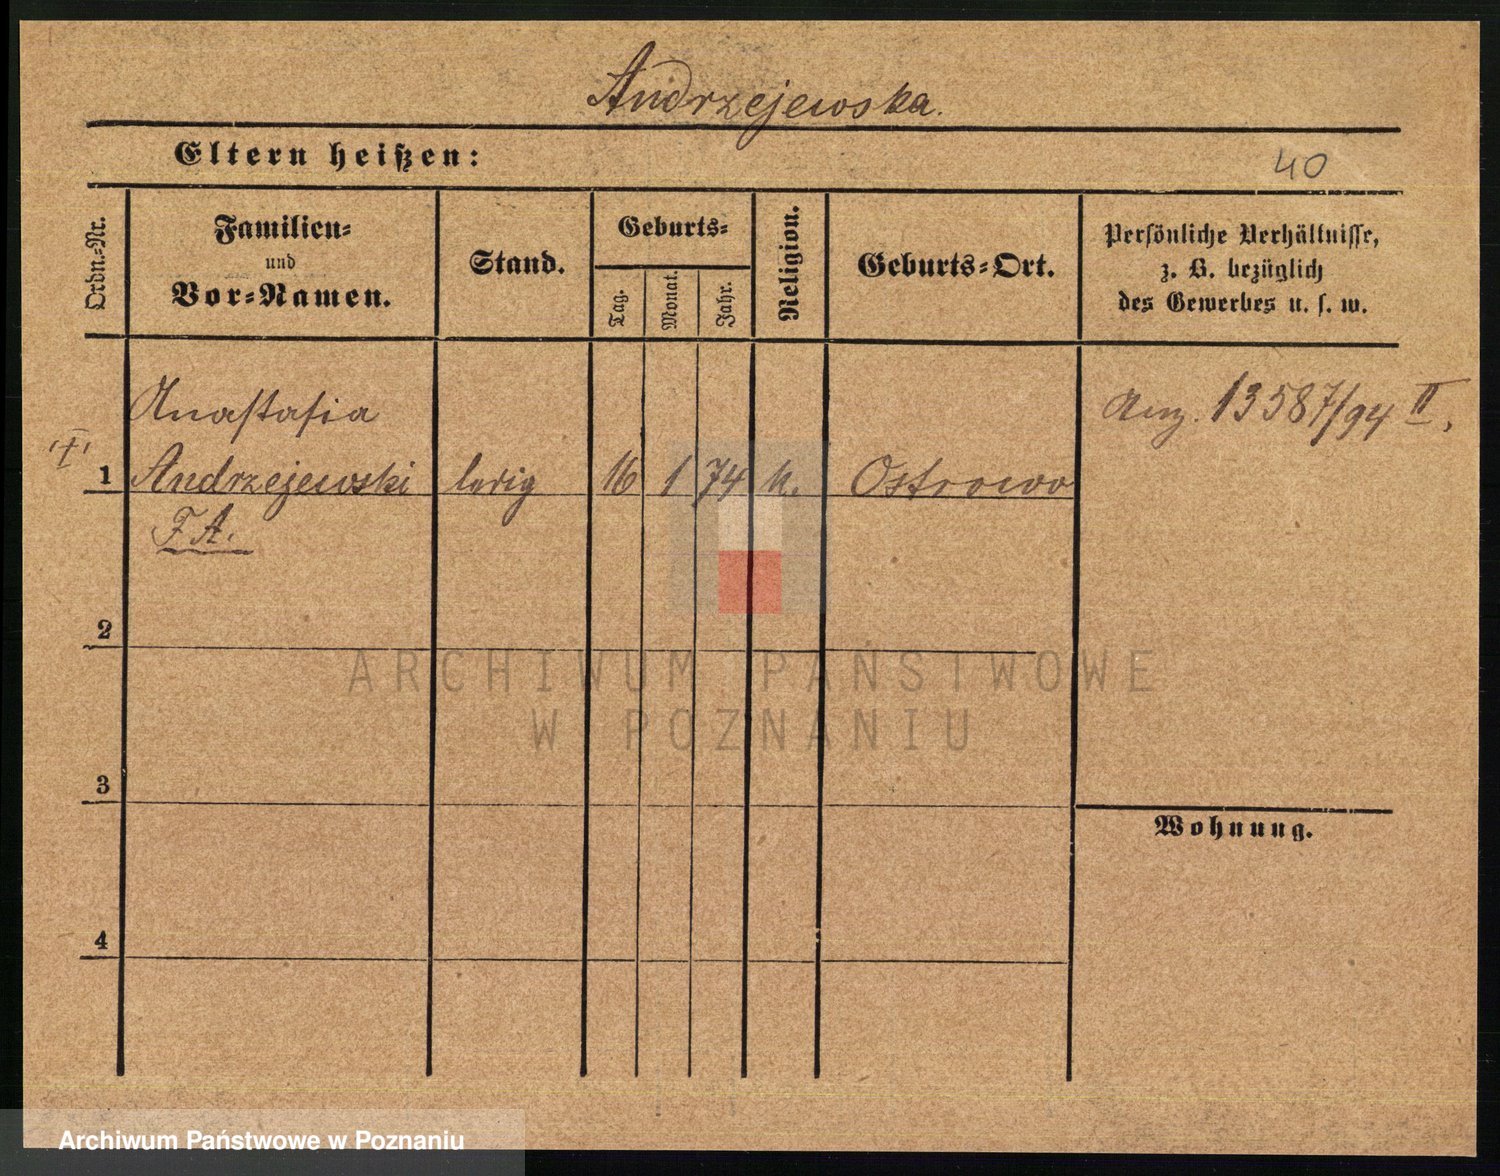 Andrzejewska.
Eltern heißen:
40
Ordn.-Nr.
Familien-
und
Vor-Namen.
Stand.
Geburts-
Tag.
Monat.
Jahr.
Religion.
Geburts-Ort.
Persönliche Verhältnisse,
z. B. bezüglich
des Gewerbes u. s. w.
Anastasia
1 Andrzejewski ledig 16 1 74 k. Ostrowo
F A.
Anz. 13587/94 II.
2
3
4
Wohnung.
ARCHIWUM PAŃSTWOWE
W POZNANIU
Archiwum Państwowe w Poznaniu